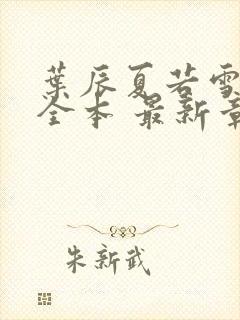 葉辰夏若雪
全本 最新章
朱新武